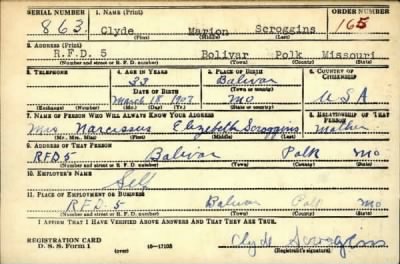 SERIAL NUMBER 1. NAME (Print) ORDER NUMBER
863 Clyde Marion Scroggins 165
(First) (Middle) (Last)
2. ADDRESS (Print)
R.F.D. 5 Bolivar Polk Missouri
(Number and street or R. F. D. number) (Town) (County) (State)
3. TELEPHONE 4. AGE IN YEARS 5. PLACE OF BIRTH 6. COUNTRY OF CITIZENSHIP
33 Bolivar
DATE OF BIRTH (Town or county)
March 18, 1907 Mo USA
(Exchange) (Number) (Mo.) (Day) (Yr.) (State or country)
7. NAME OF PERSON WHO WILL ALWAYS KNOW YOUR ADDRESS 8. RELATIONSHIP OF THAT PERSON
Mrs Narcissus Elizabeth Scroggins Mother
(Mr., Mrs., Miss) (First) (Middle) (Last)
9. ADDRESS OF THAT PERSON
RFD 5 Bolivar Polk Mo
(Number and street or R. F. D. number) (Town) (County) (State)
10. EMPLOYER'S NAME
Self
11. PLACE OF EMPLOYMENT OR BUSINESS
R.F.D. 5 Bolivar Polk Mo
(Number and street or R. F. D. number) (Town) (County) (State)
I AFFIRM THAT I HAVE VERIFIED ABOVE ANSWERS AND THAT THEY ARE TRUE.
REGISTRATION CARD
D. S. S. Form 1 (over) 16-17105
Scroggins
(Registrant's signature)